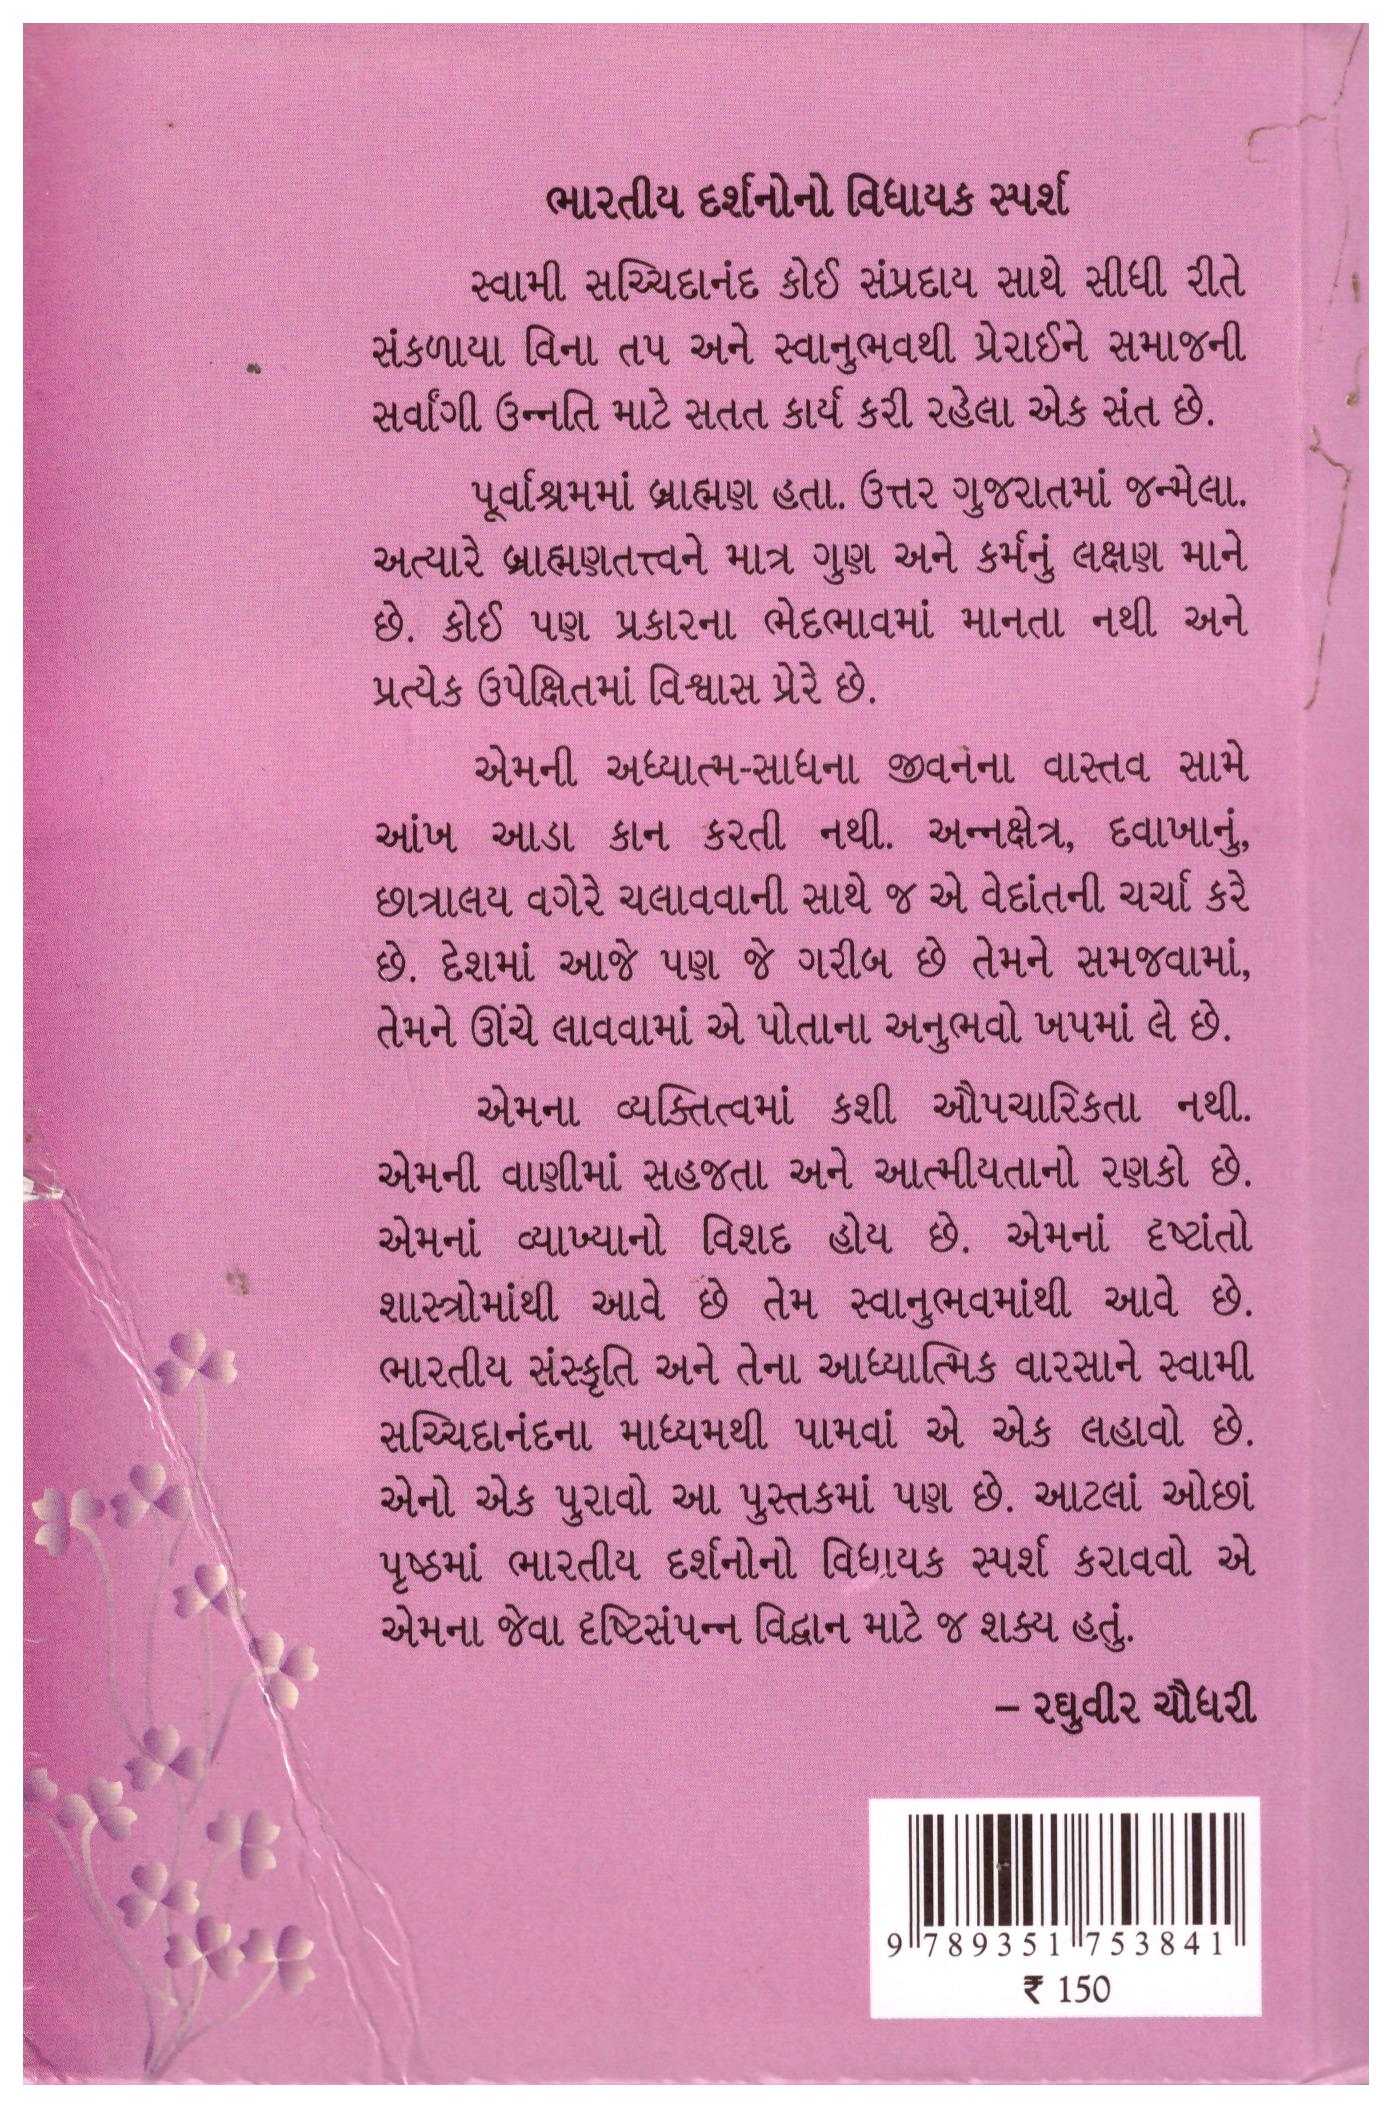 ભારતીય દર્શનોનો વિધાયક સ્પર્શ
સ્વામી સચ્ચિદાનંદ કોઈ સંપ્રદાય સાથે સીધી રીતે
સંકળાયા વિના તપ અને સ્વાનુભવથી પ્રેરાઈને સમાજની
સર્વાંગી ઉન્નતિ માટે સતત કાર્ય કરી રહેલા એક સંત છે.
પૂર્વાશ્રમમાં બ્રાહ્મણ હતા. ઉત્તર ગુજરાતમાં જન્મેલા.
અત્યારે બ્રાહ્મણતત્ત્વને માત્ર ગુણ અને કર્મનું લક્ષણ માને
છે. કોઈ પણ પ્રકારના ભેદભાવમાં માનતા નથી અને
પ્રત્યેક ઉપેક્ષિતમાં વિશ્વાસ પ્રેરે છે.
એમની અધ્યાત્મ-સાધના જીવનના વાસ્તવ સામે
આંખ આડા કાન કરતી નથી. અન્નક્ષેત્ર, દવાખાનું,
છાત્રાલય વગેરે ચલાવવાની સાથે જ એ વેદાંતની ચર્ચા કરે
છે. દેશમાં આજે પણ જે ગરીબ છે તેમને સમજવામાં,
તેમને ઊંચે લાવવામાં એ પોતાના અનુભવો ખપમાં લે છે.
એમના વ્યક્તિત્વમાં કશી ઔપચારિકતા નથી.
એમની વાણીમાં સહજતા અને આત્મીયતાનો રણકો છે.
એમનાં વ્યાખ્યાનો વિશદ હોય છે. એમનાં દૃષ્ટાંતો
શાસ્ત્રોમાંથી આવે છે તેમ સ્વાનુભવમાંથી આવે છે.
ભારતીય સંસ્કૃતિ અને તેના આધ્યાત્મિક વારસાને સ્વામી
સચ્ચિદાનંદના માધ્યમથી પામવાં એ એક લહાવો છે.
એનો એક પુરાવો આ પુસ્તકમાં પણ છે. આટલાં ઓછાં
પૃષ્ઠમાં ભારતીય દર્શનોનો વિધાયક સ્પર્શ કરાવવો એ
એમના જેવા દૃષ્ટિસંપન્ન વિદ્વાન માટે જ શક્ય હતું.
– રઘુવીર ચૌધરી
9 789351 753841
₹ 150